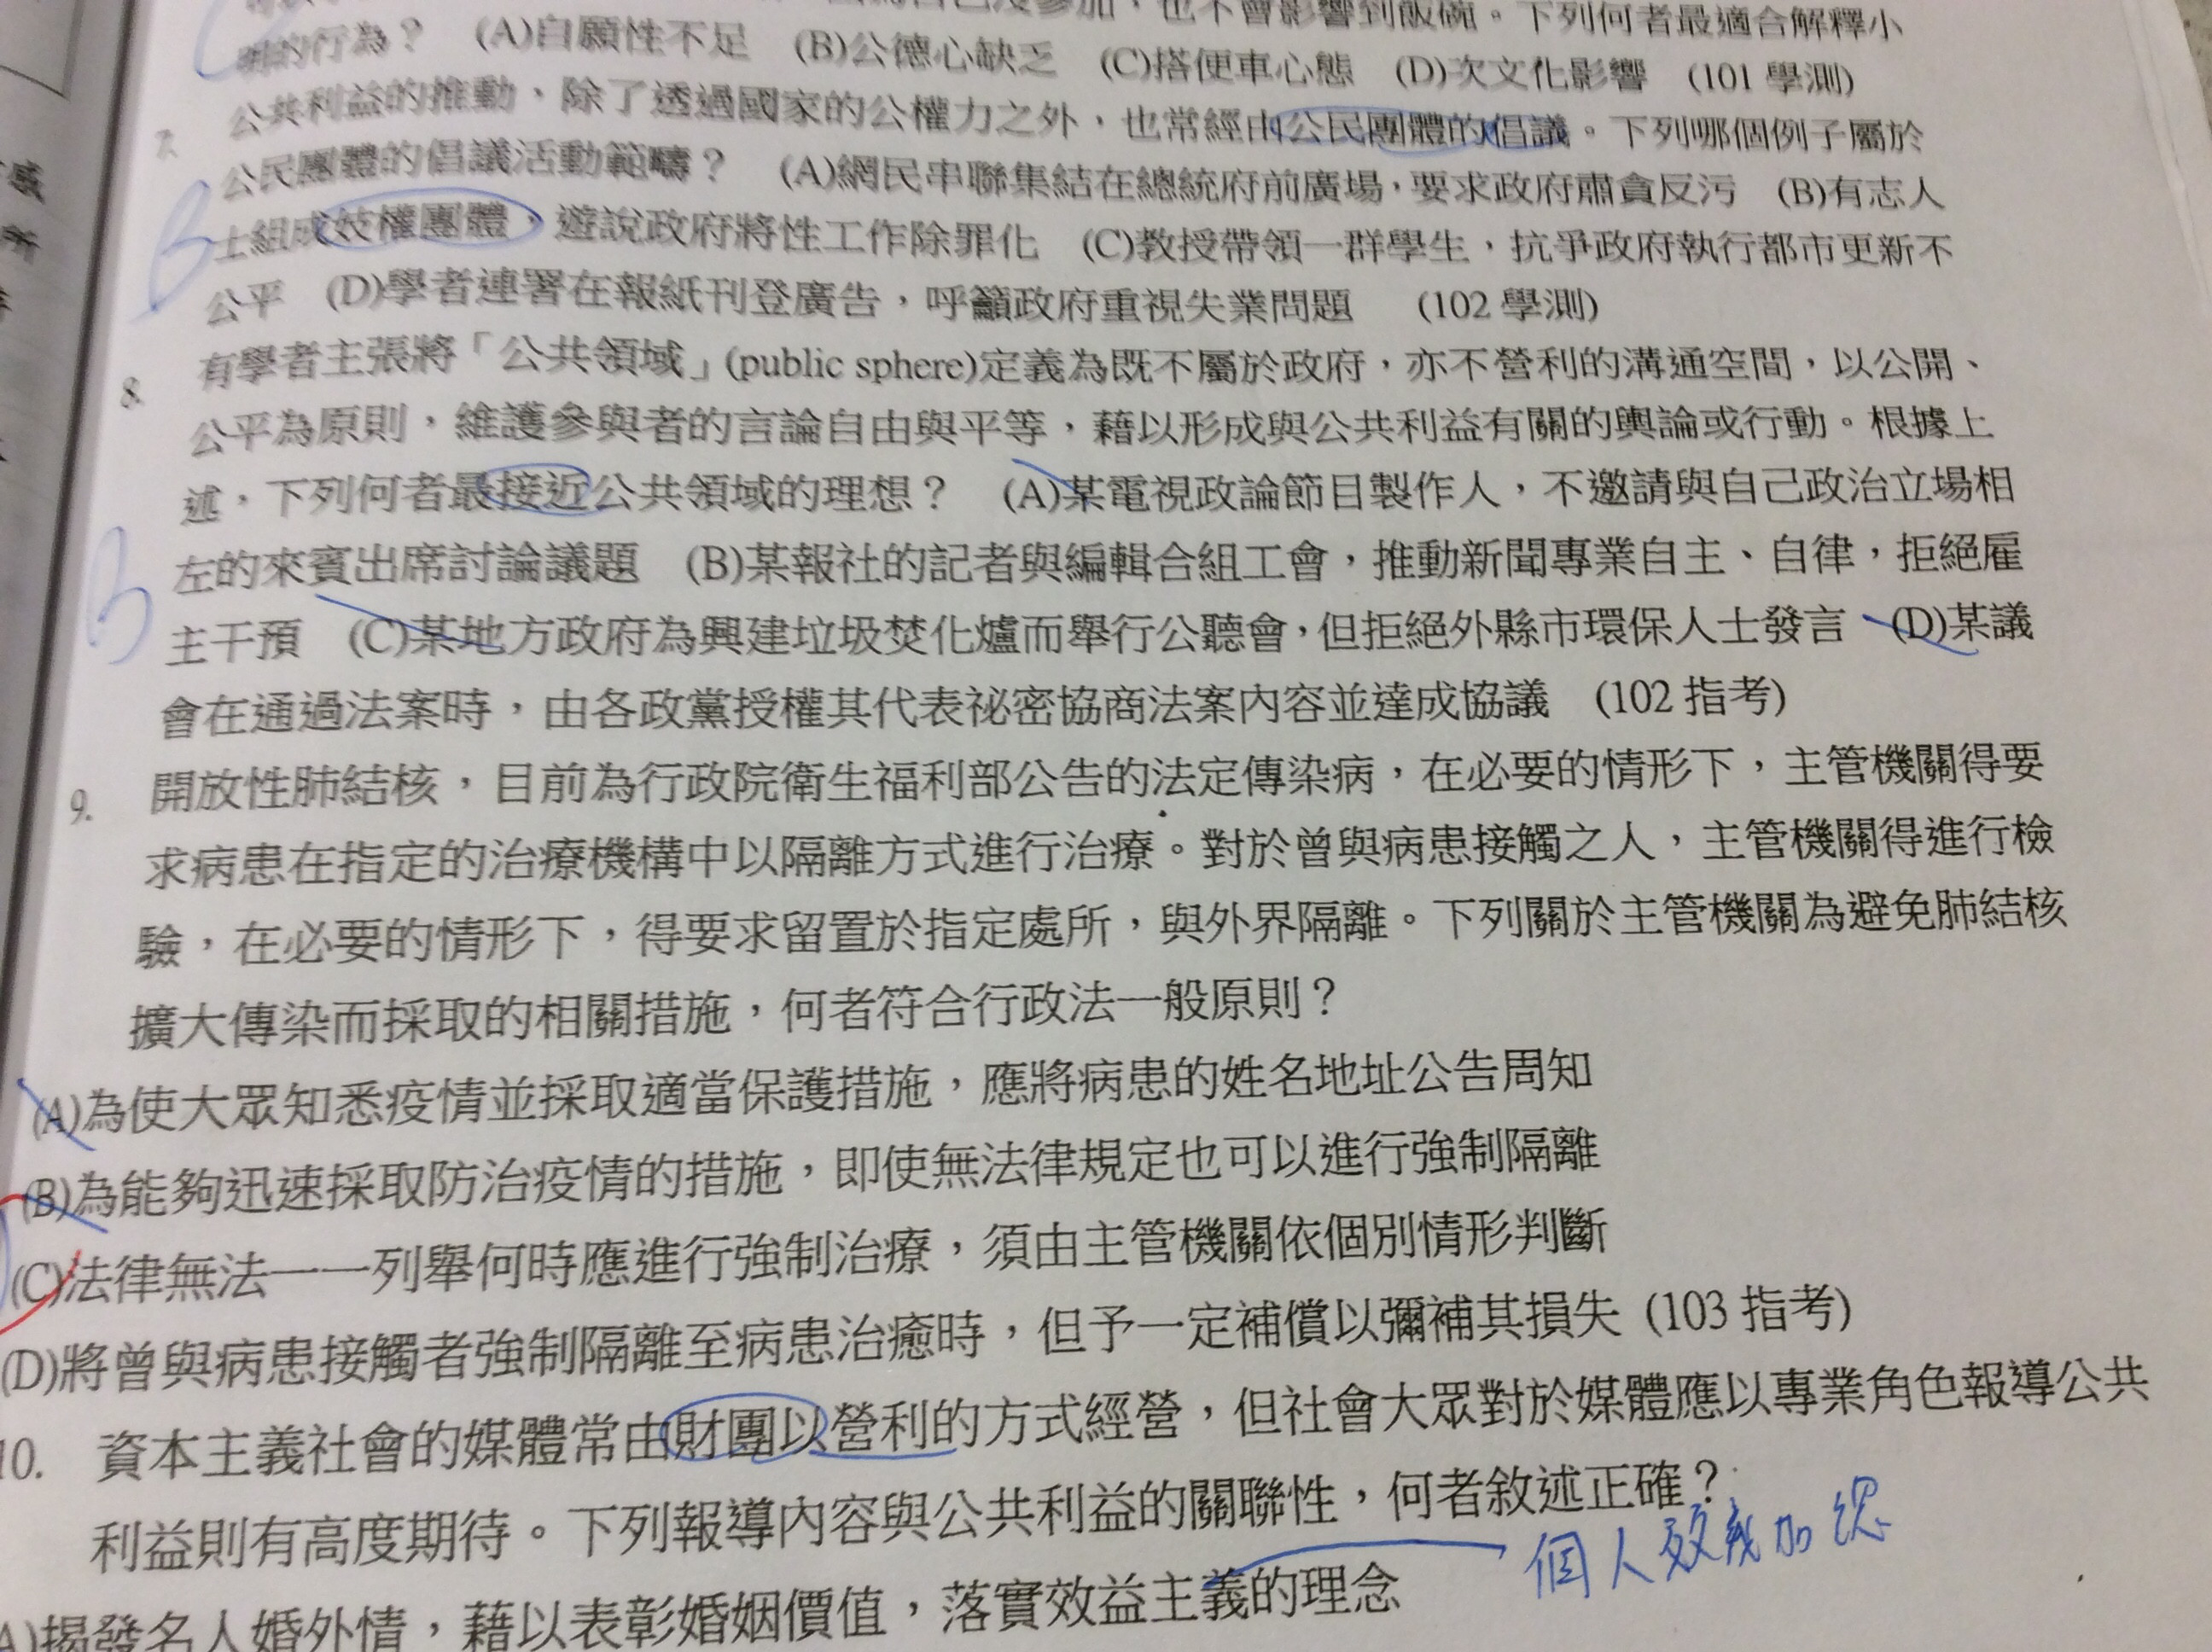 也不會影響到飯碗。下列何者最適合解釋小
明的行為？ (A)自願性不足 (B)公德心缺乏 (C)搭便車心態 (D)次文化影響 (101 學測)
7. 公共利益的推動，除了透過國家的公權力之外，也常經由公民團體的倡議。下列哪個例子屬於
公民團體的倡議活動範疇？ (A)網民串聯集結在總統府前廣場，要求政府肅貪反污 (B)有志人
士組成妓權團體，遊說政府將性工作除罪化 (C)教授帶領一群學生，抗爭政府執行都市更新不
公平 (D)學者連署在報紙刊登廣告，呼籲政府重視失業問題 (102 學測)
B
8. 有學者主張將「公共領域」(public sphere)定義為既不屬於政府，亦不營利的溝通空間，以公開、
公平為原則，維護參與者的言論自由與平等，藉以形成與公共利益有關的輿論或行動。根據上
述，下列何者最接近公共領域的理想？ (A)某電視政論節目製作人，不邀請與自己政治立場相
左的來賓出席討論議題 (B)某報社的記者與編輯合組工會，推動新聞專業自主、自律，拒絕雇
主干預 (C)某地方政府為興建垃圾焚化爐而舉行公聽會，但拒絕外縣市環保人士發言 (D)某議
會在通過法案時，由各政黨授權其代表祕密協商法案內容並達成協議 (102 指考)
B
9. 開放性肺結核，目前為行政院衛生福利部公告的法定傳染病，在必要的情形下，主管機關得要
求病患在指定的治療機構中以隔離方式進行治療。對於曾與病患接觸之人，主管機關得進行檢
驗，在必要的情形下，得要求留置於指定處所，與外界隔離。下列關於主管機關為避免肺結核
擴大傳染而採取的相關措施，何者符合行政法一般原則？
(A)為使大眾知悉疫情並採取適當保護措施，應將病患的姓名地址公告周知
(B)為能夠迅速採取防治疫情的措施，即使無法律規定也可以進行強制隔離
(C)法律無法一一列舉何時應進行強制治療，須由主管機關依個別情形判斷
(D)將曾與病患接觸者強制隔離至病患治癒時，但予一定補償以彌補其損失 (103 指考)
10. 資本主義社會的媒體常由財團以營利的方式經營，但社會大眾對於媒體應以專業角色報導公共
利益則有高度期待。下列報導內容與公共利益的關聯性，何者敘述正確？
A)揭發名人婚外情，藉以表彰婚姻價值，落實效益主義的理念
個人效義加總